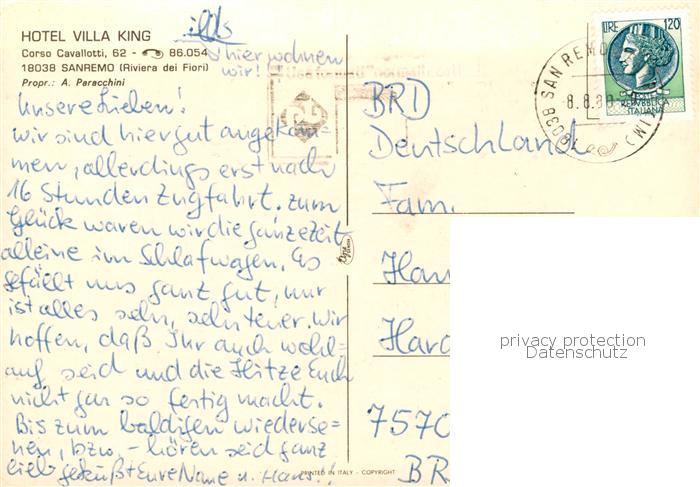 HOTEL VILLA KING
Corso Cavallotti, 62 - 86.054
18038 SANREMO (Riviera dei Fiori)
Propr.: A. Paracchini
hier wohnen
wir!
Unsere Lieben!
wir sind hier gut angekom-
men, allerdings erst nach
16 Stunden Zugfahrt. zum
Glück waren wir die ganze Zeit
alleine im Schlafwagen. Es
gefällt uns ganz gut, nur
ist alles sehr, sehr teuer. Wir
hoffen, daß Ihr auch wohl-
auf seid und die Hitze Euch
nicht gar so fertig macht.
Bis zum baldigen Wiederse-
hen, bzw. - hören seid ganz
lieb geküßt Eure u. Hans!!
LIRE 120
REPVBBLICA
ITALIANA
18038 SAN REMO (IM)
8.8.80
BRD
Deutschland
Fam.
Han
Hard
7570
BR
PRINTED IN ITALY - COPYRIGHT
privacy protection
Datenschutz